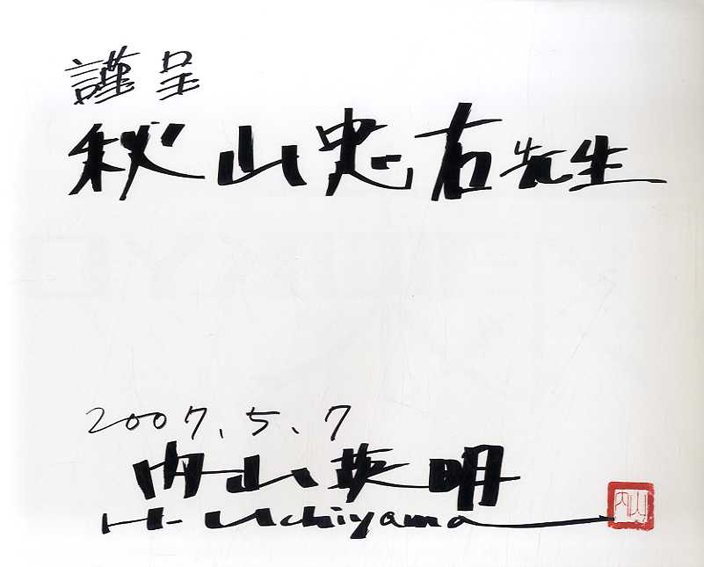 謹呈
秋山忠右先生
2007.5.7
内山英明
H. Uchiyama
内山